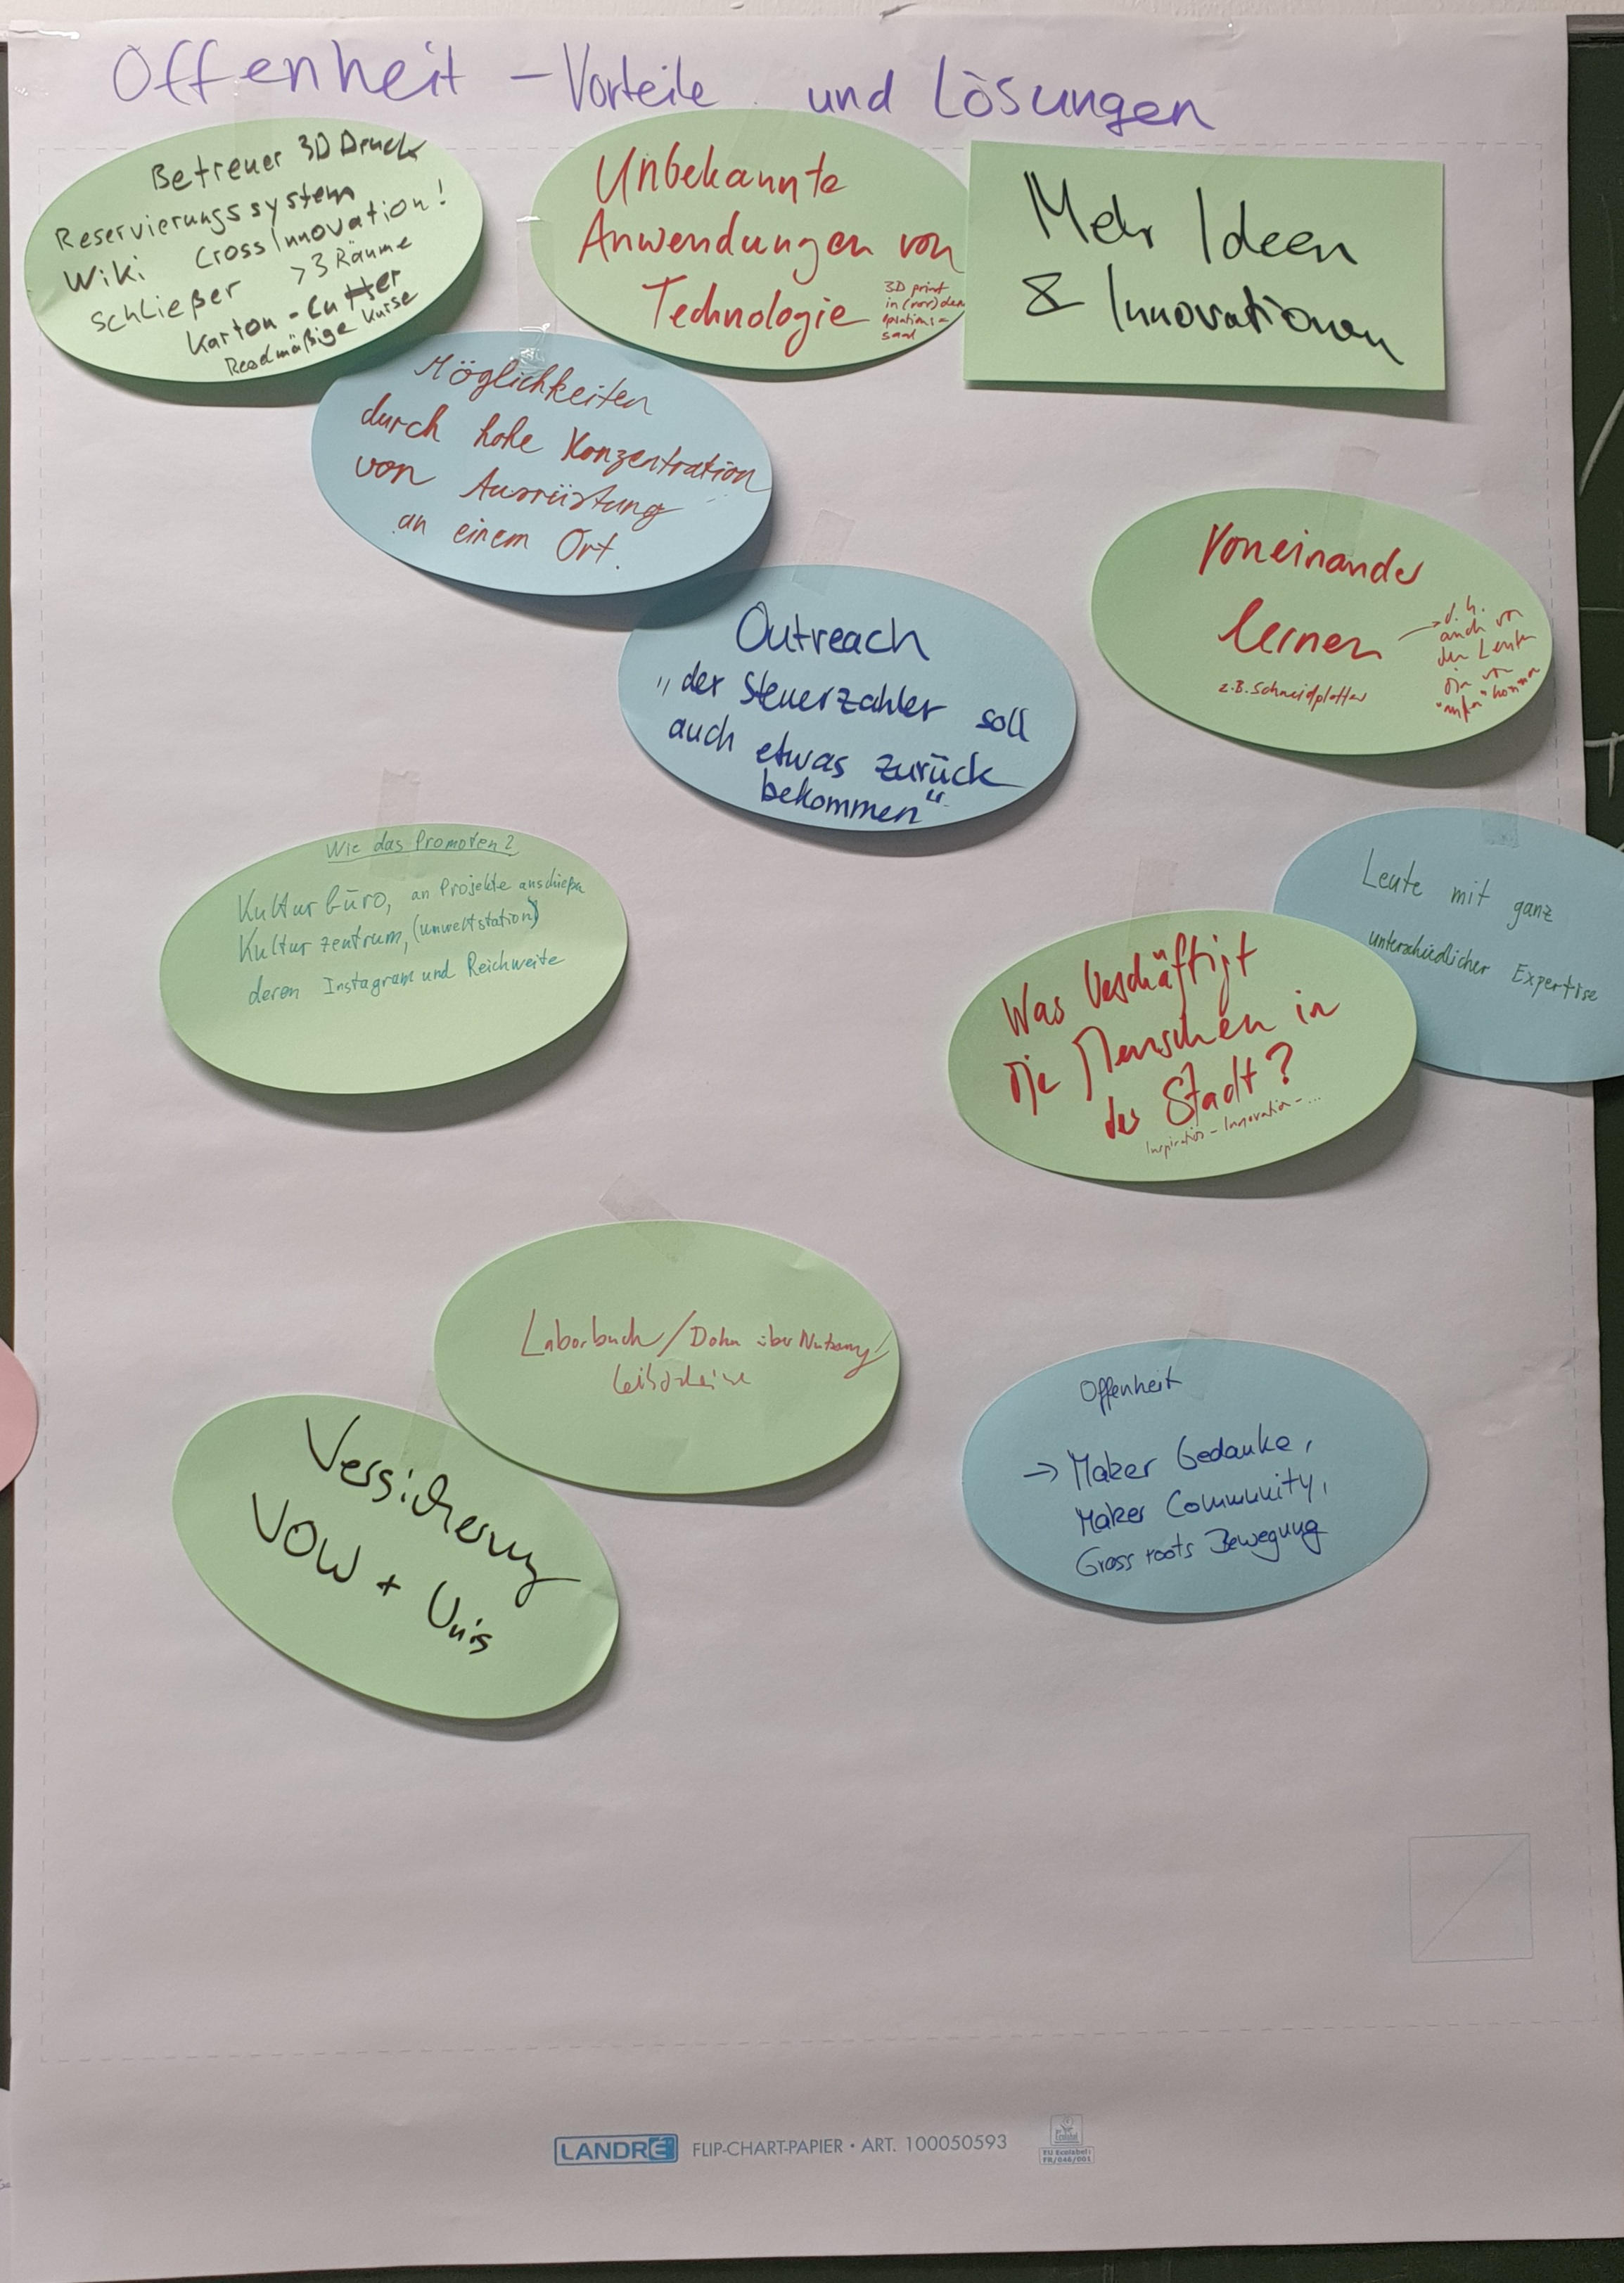 Offenheit – Vorteile und Lösungen
Betreuer 3D Druck
Reservierungssystem
Wiki CrossInnovation!
Schließer >3 Räume
Karton-Cutter
Regelmäßige Kurse
Unbekannte
Anwendungen von
Technologie
3D print
in (vor) den
saal
Mehr Ideen
& Innovationen
Möglichkeiten
durch hohe Konzentration
von Ausrüstung
an einem Ort.
Voneinander
lernen
z.B. Schneidplotter
→ d.h.
auch von
den Leuten
die von
Outreach
„der Steuerzahler soll
auch etwas zurück
bekommen“
Wie das Promoten?
Kulturbüro, an Projekte
Kulturzentrum, (Umweltstation)
deren Instagram und Reichweite
Leute mit ganz
unterschiedlicher Expertise
Was beschäftigt
die Menschen in
der Stadt?
Inspiration – Innovation – ...
Laborbuch/Doku über Nutzung/
Leihscheine
Versicherung
VOW + Unis
Offenheit
→ Maker Gedanke,
Maker Community,
Grass roots Bewegung
LANDRÉ FLIP-CHART-PAPIER • ART. 100050593
EU Ecolabel:
FR/046/001